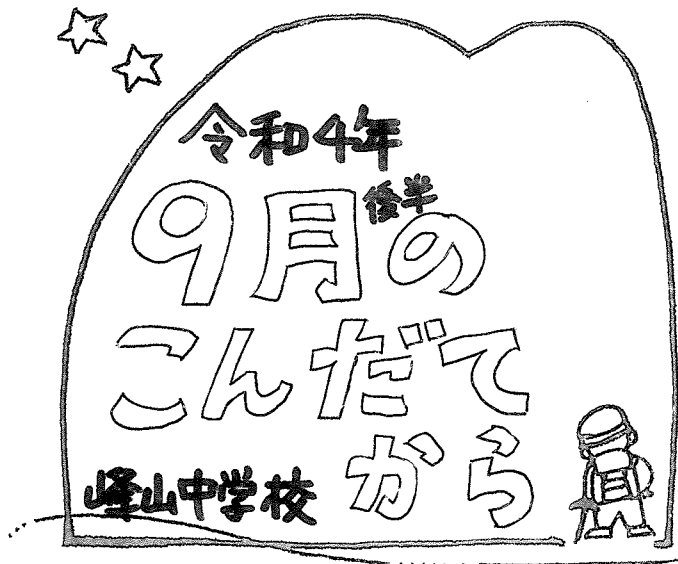 令和4年
9月後半の
こんだて
から
峰山中学校